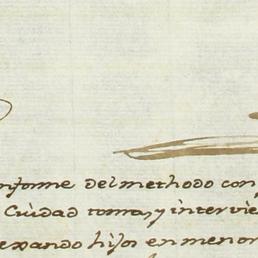 nforme del methodo con
Ciudad toma, y intervie
exando hijos en menor